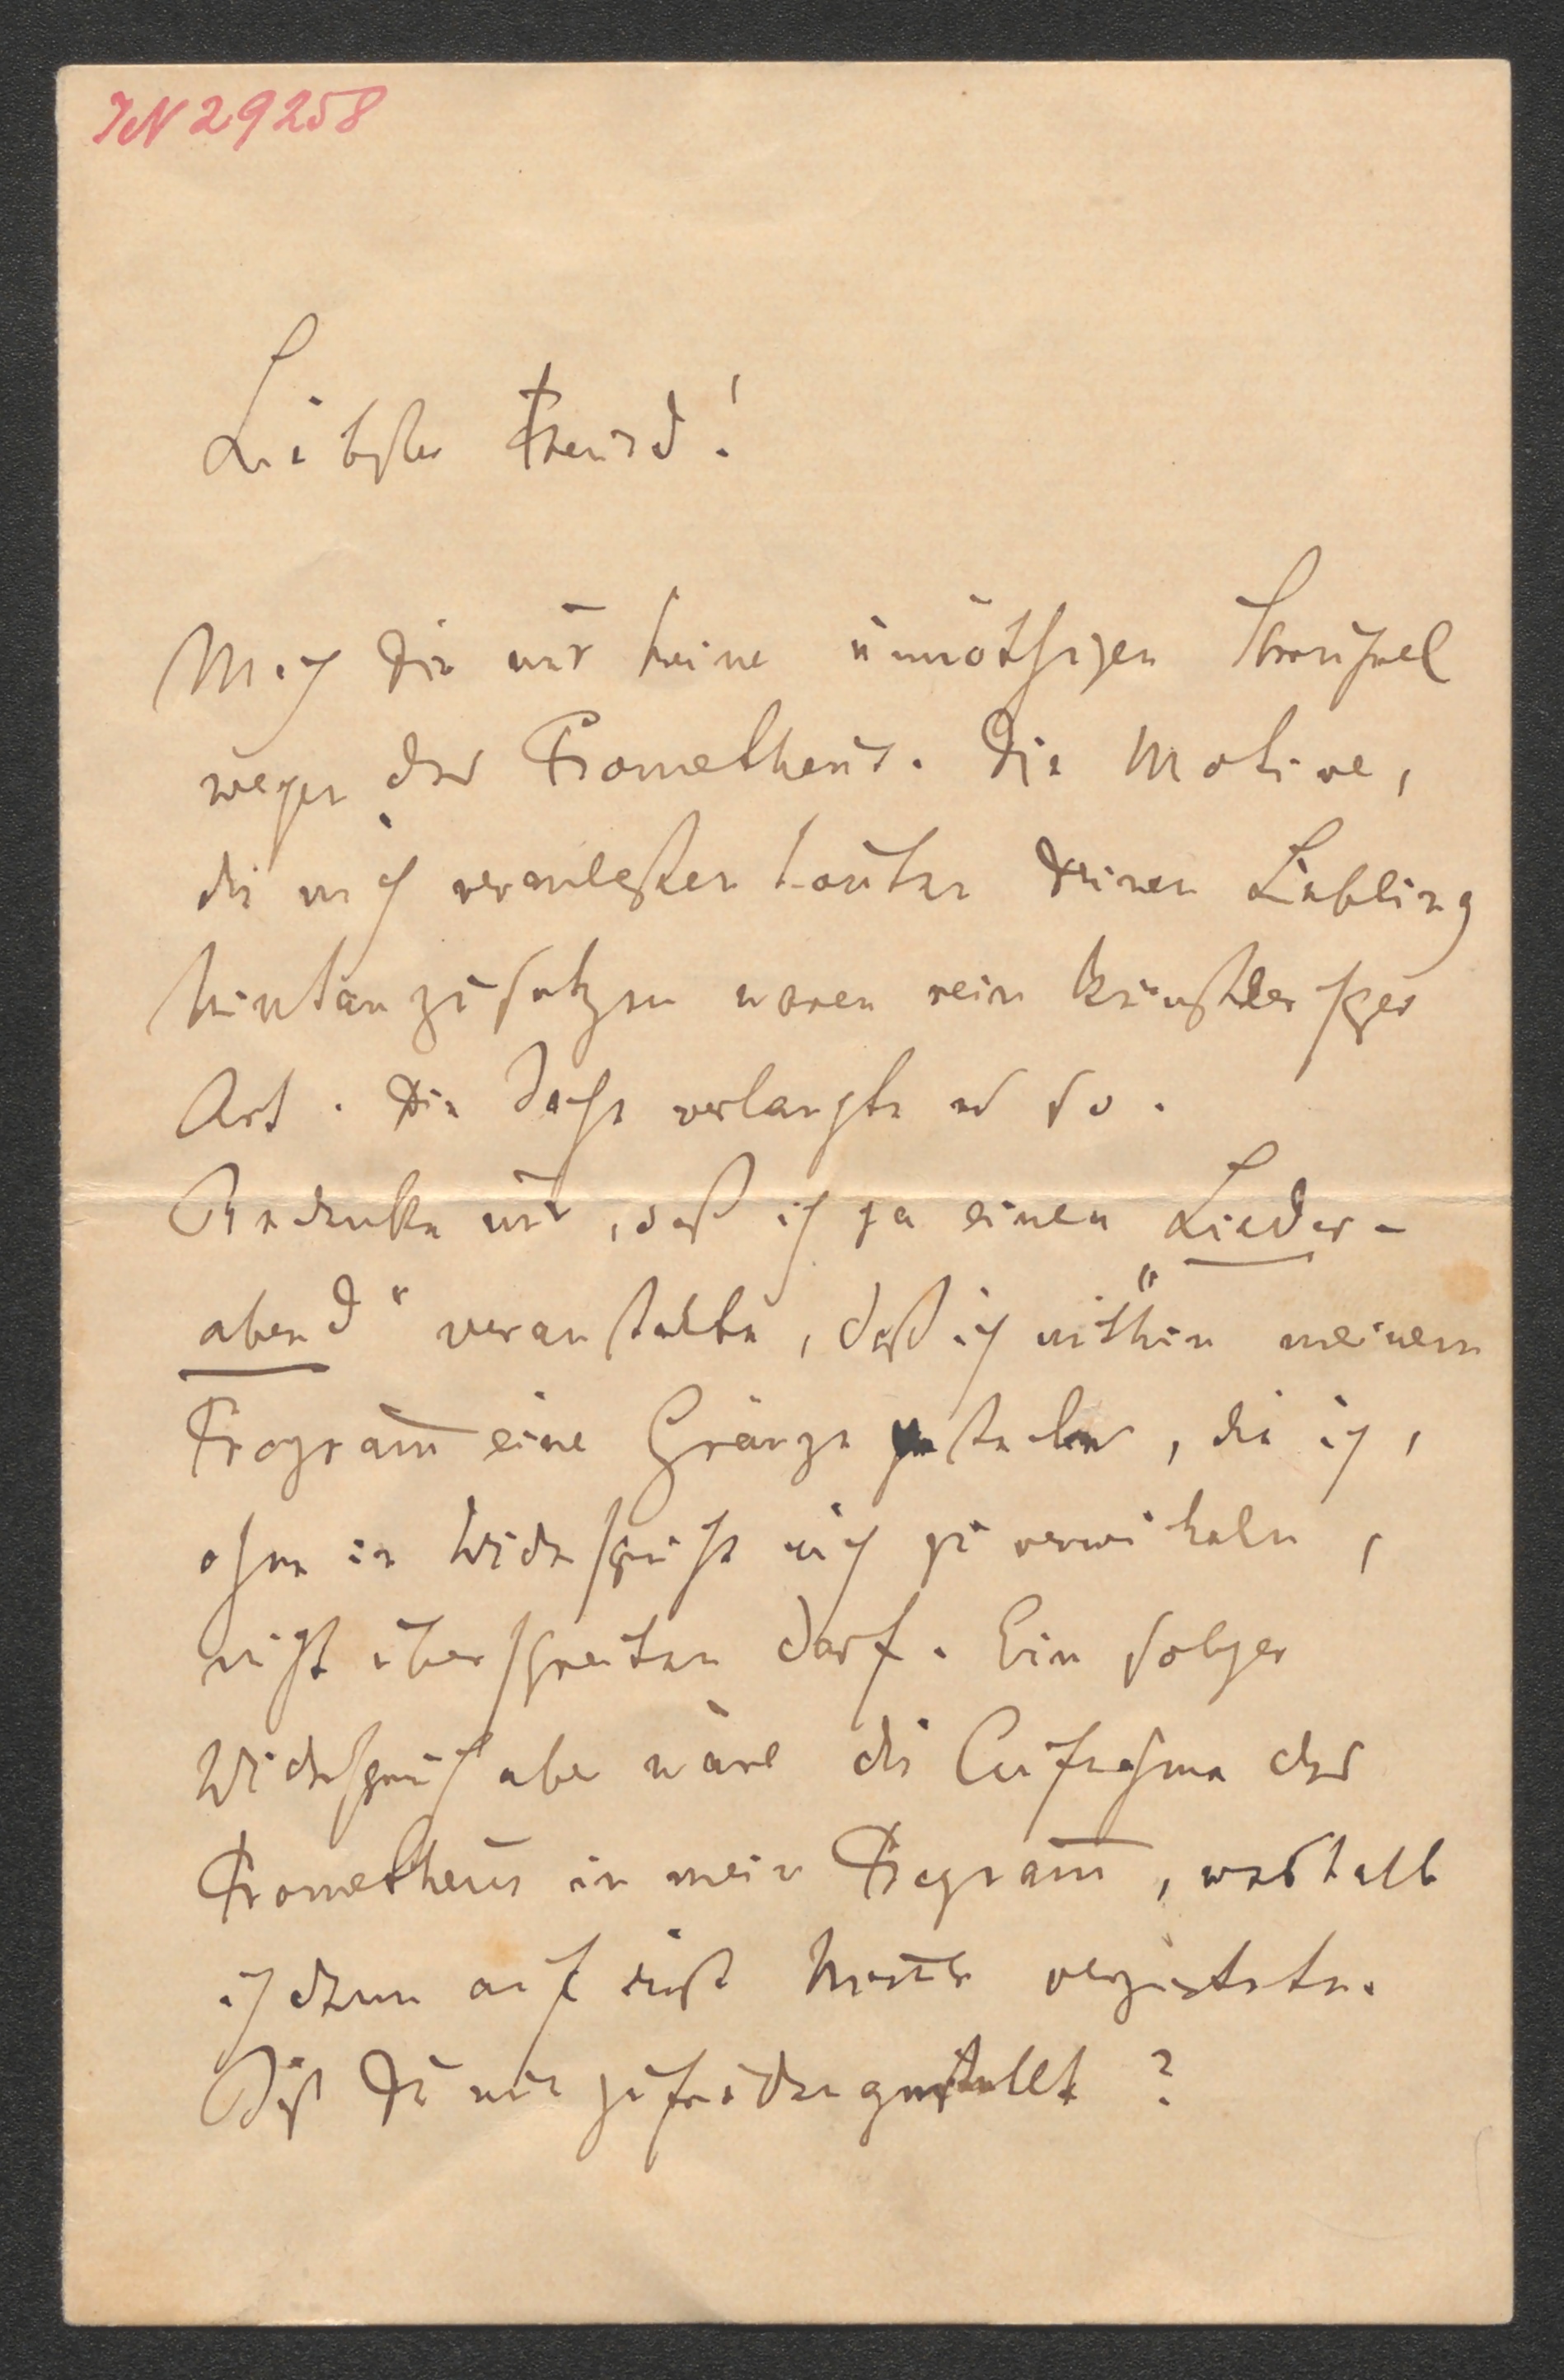 IN 29258
Liebster Freund!
Mach Dir nur keine unnöthigen Skrupel
wegen des Prometheus. Die Motive,
die mich veranlaßten heute Deinen Liebling
hintanzusetzen waren rein künstlerischer
Art. Die Sache verlangte es so.
Bedenke nur, daß ich ja einen „Lieder-
abend“ veranstalte, daß ich mithin meinem
Programm eine Gränze gestellt, die ich,
ohne in Widersprüche mich zu verwickeln,
nicht überschreiten darf. Ein solcher
Widerspruch aber wäre die Aufnahme des
Prometheus in mein Programm, weshalb
ich denn auf verzichtete.
Bist Du nun zufriedengestellt?